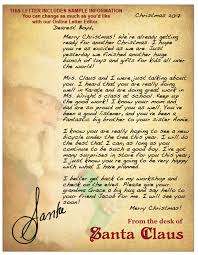 THIS LETTER INCLUDES SAMPLE INFORMATION
You can change as much as you'd like
with our Online Letter Editor.
Christmas 2017
Dearest Boyd,
Merry Christmas! We're already getting
ready for another Christmas. I hope
you're as excited as we are. Just
yesterday we finished another huge
bunch of toys and goodies for kids all
over the world.
Mrs. Claus and I were just talking about
you. I heard that you are really good
at reading and are doing good work in
Ms. Wright's class at school. Keep up
the good work! I know your mom and
dad are so proud of you as well. You've
been a good listener, and you've been a
fantastic big brother to your sister Annie.
I know you are really hoping to see a
new bicycle under the tree this year. I will
do the best that I can, as long as you
continue to be such a good boy. I've got
many surprises in store for you this year,
I just know you're going to be very happy
with what I have planned.
I better get back to my workshop and
check on the elves. Please give your
grandma Grace a big hug and say hello to
your friend Jacob for me. I love you!
Merry Christmas!
Santa
From the desk of
Santa Claus